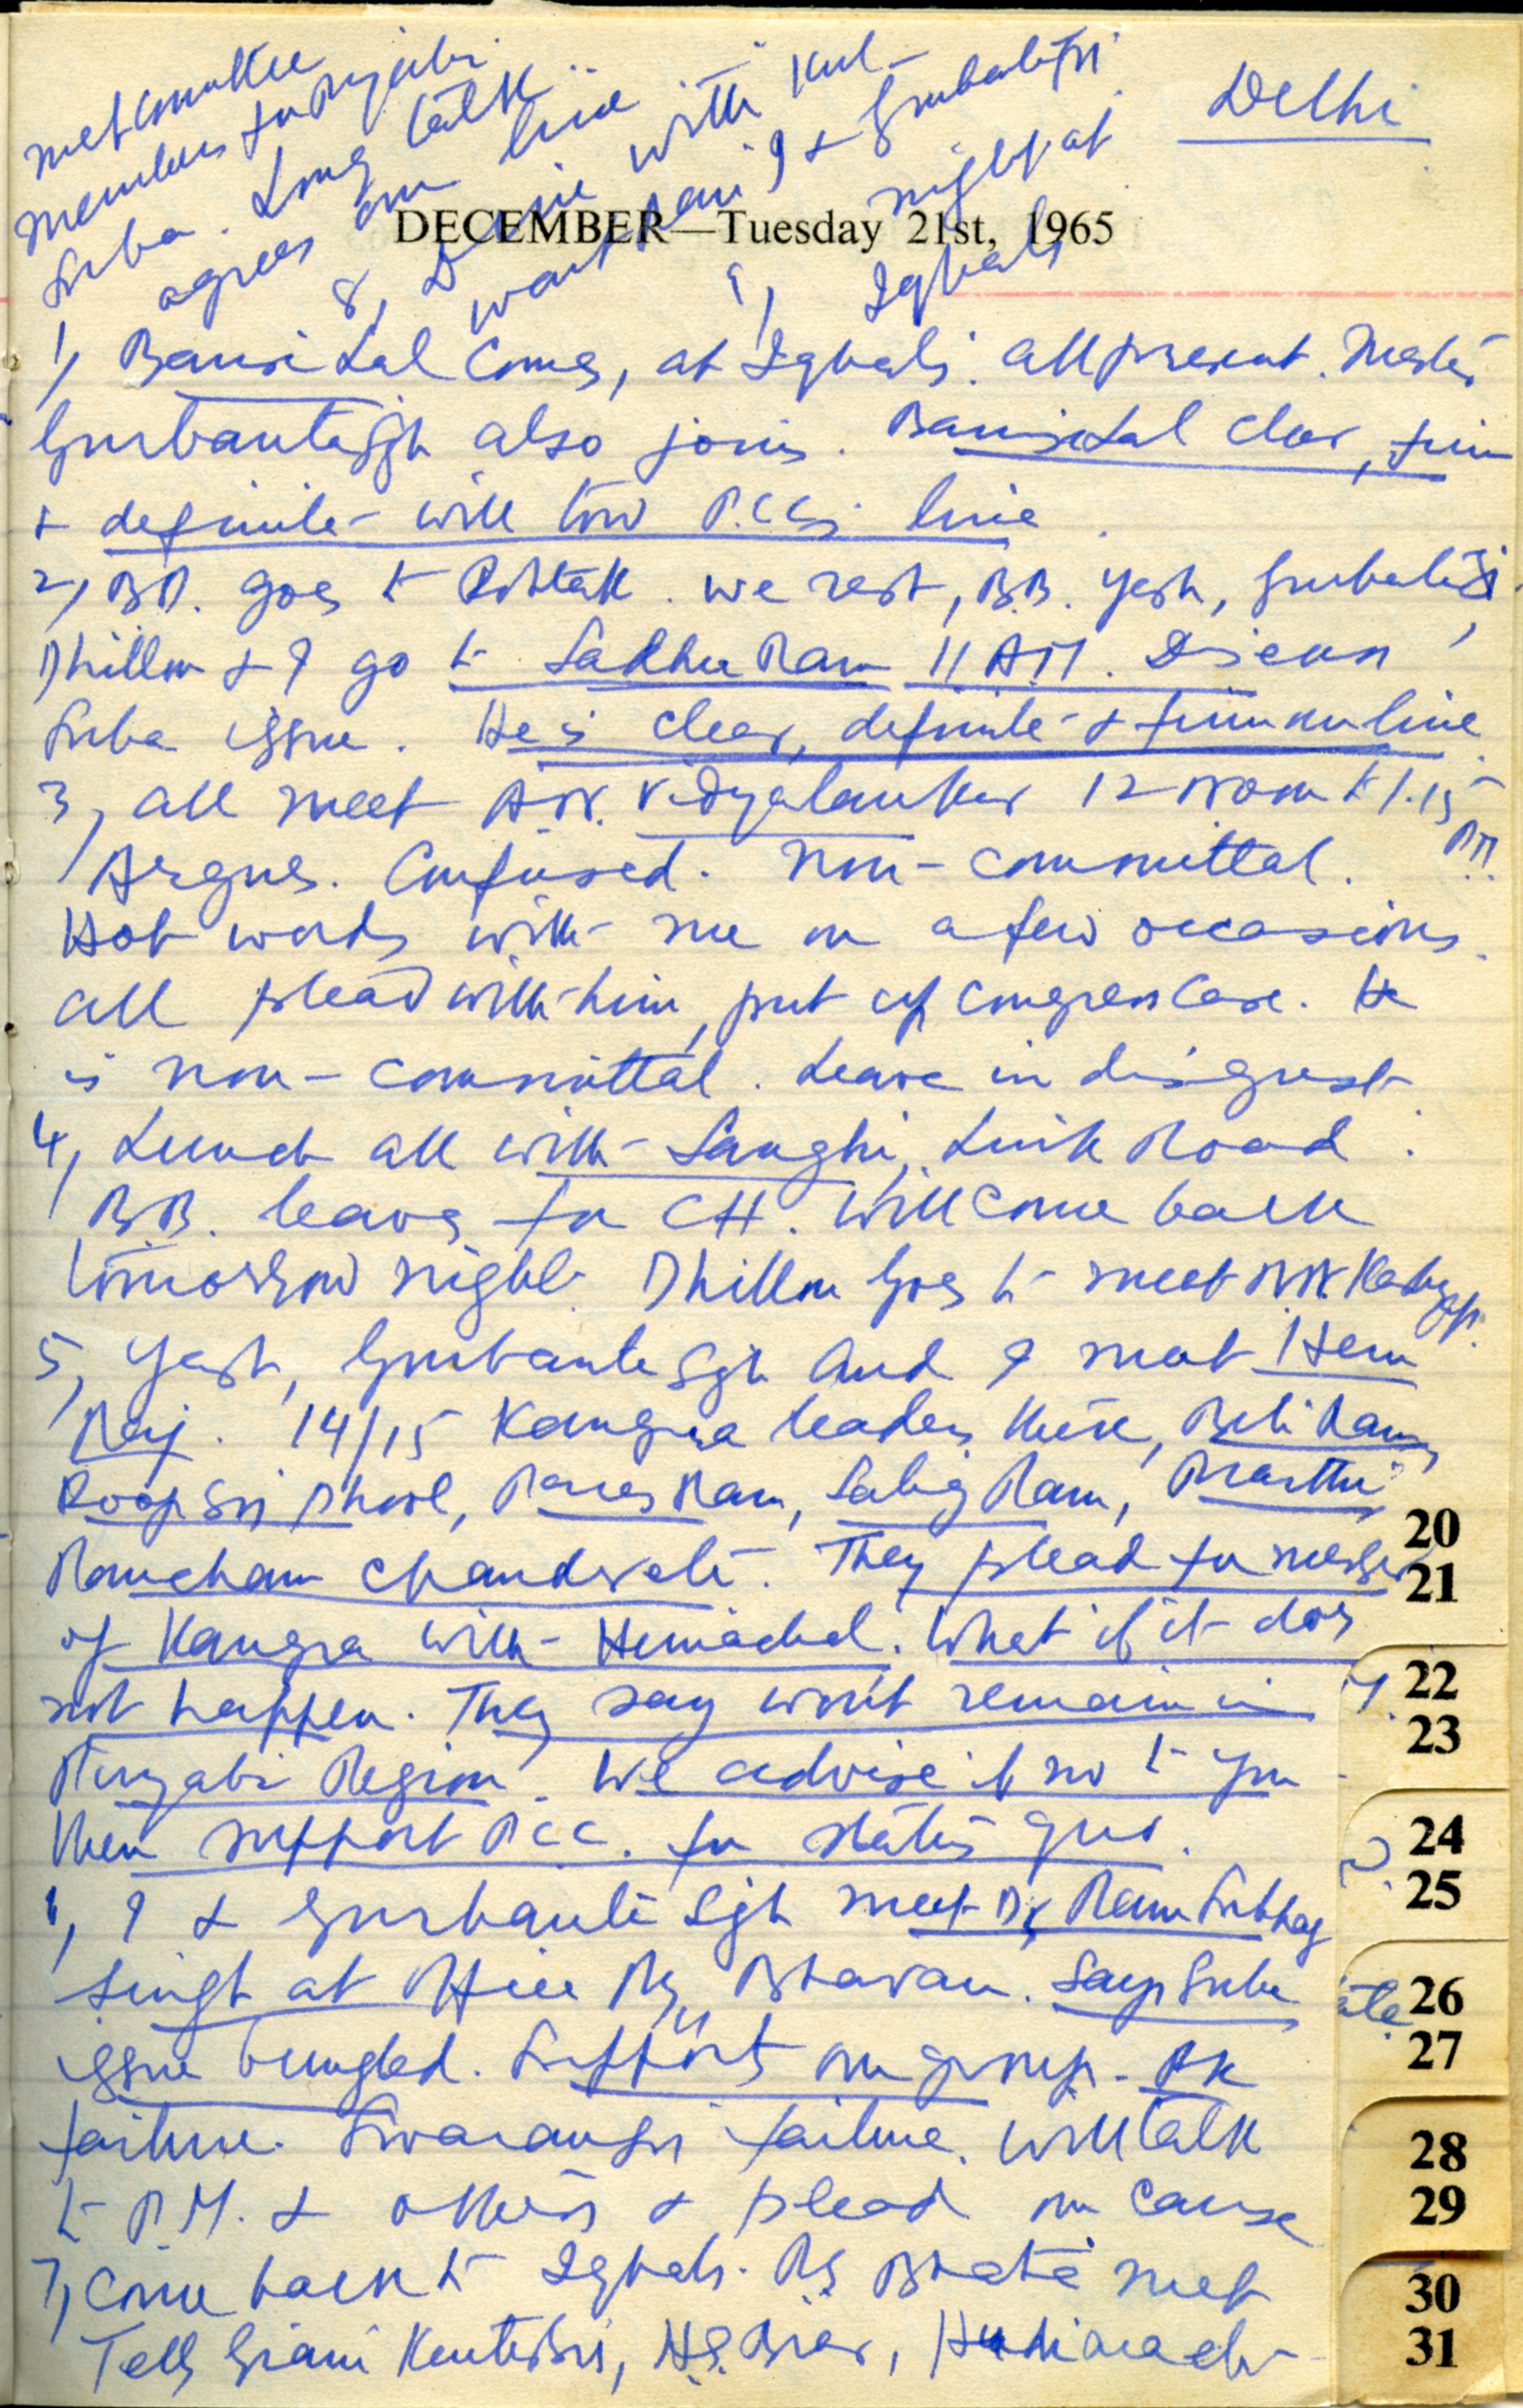 Delhi
DECEMBER—Tuesday 21st, 1965
1, Bansi Lal comes, at Iqbal's. All present. Master
Gurbanta Sgh also joins. Bansi Lal clear, firm
& definite - will tow P.C.C's line.
2, B.D. goes to Rohtak. We rest, B.B. Yash, Gurbanta
Dhillon & I go to Sadhu Ram 11 AM. Discuss
Suba issue. He is clear, definite & firm on line.
3, All meet A.N. Vidyalankar 12 Noon to 1.15
P.M.
Argues. Confused. Non-committal.
Hot words with me on a few occasions.
All plead with him, put up Congress case. He
is non-committal. Leave in disgust.
4, Lunch all with Sanghi, Link Road.
B.B. leaves for CH. Will come back
tomorrow night. Dhillon goes to meet
5, Yash, Gurbanta Sgh and I meet Hem
Raj. 14/15 Kangra leaders there, Beli Ram,
Roop Sgh Phool, Paras Ram, Salig Ram,
Ramcharn They plead for merger
of Kangra with Himachal. What if it does
not happen. They say won't remain in
Punjabi Region. We advise if no to you
then support P.C.C. for status quo.
6, I & Gurbanta Sgh meet Dr Ram Subhag
Singh at office Bhavan. Says Suba
issue bungled. Supports our group.
failure. Swaran Sgh failure. Will talk
to P.M. & others & plead our cause
7, Come back to Iqbal's. met
Tells Giani Kartar Sgh, H.S. Brar,
met committee
members for Punjabi
Suba. Long talk
agrees our line
8, Dine with Kul-
want Rai I & Gurbanta Sgh
9, night at
Iqbal's
20
21
22
23
24
25
26
27
28
29
30
31